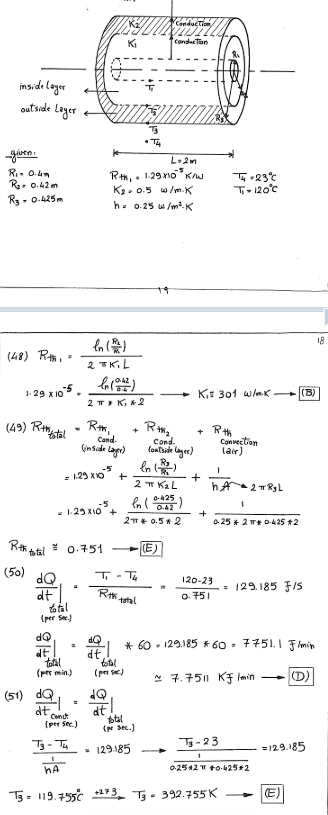 conduction
K2
K1
conduction
R1
R3
inside layer
outside layer
T1
T2
T3
T4
L=2m
given:
R1 = 0.4m
R2 = 0.42m
R3 = 0.425m
Rth1 = 1.29×10^-5 K/W
K2 = 0.5 w/m.K
h = 0.25 w/m².K
T4 = 23°C
T1 = 120°C
19
18
(48) Rth1 = ln(R2/R1) / 2πK1L
1.29×10^-5 = ln(0.42/0.4) / 2π*K1*2 → K1 ≅ 301 w/m.K → (B)
(49) Rth total = Rth1 + Rth2 + Rth
Cond. Cond. Convection
(inside layer) (outside layer) (air)
= 1.29×10^-5 + ln(R3/R2) / 2πK2L + 1 / hA → 2πR3L
= 1.29×10^-5 + ln(0.425/0.42) / 2π*0.5*2 + 1 / 0.25*2π*0.425*2
Rth total ≅ 0.751 → (E)
(50) dQ/dt| total (per sec.) = T1 - T4 / Rth total = 120-23 / 0.751 = 129.185 J/S
dQ/dt| total (per min.) = dQ/dt| total (per sec.) * 60 = 129.185 * 60 = 7751.1 J/min
≅ 7.7511 KJ/min → (D)
(51) dQ/dt| Conv. (per sec.) = dQ/dt| total (per sec.)
T3 - T4 / 1/hA = 129.185 → T3 - 23 / 1/0.25*2π*0.425*2 = 129.185
T3 = 119.755°C +273→ T3 = 392.755K → (E)